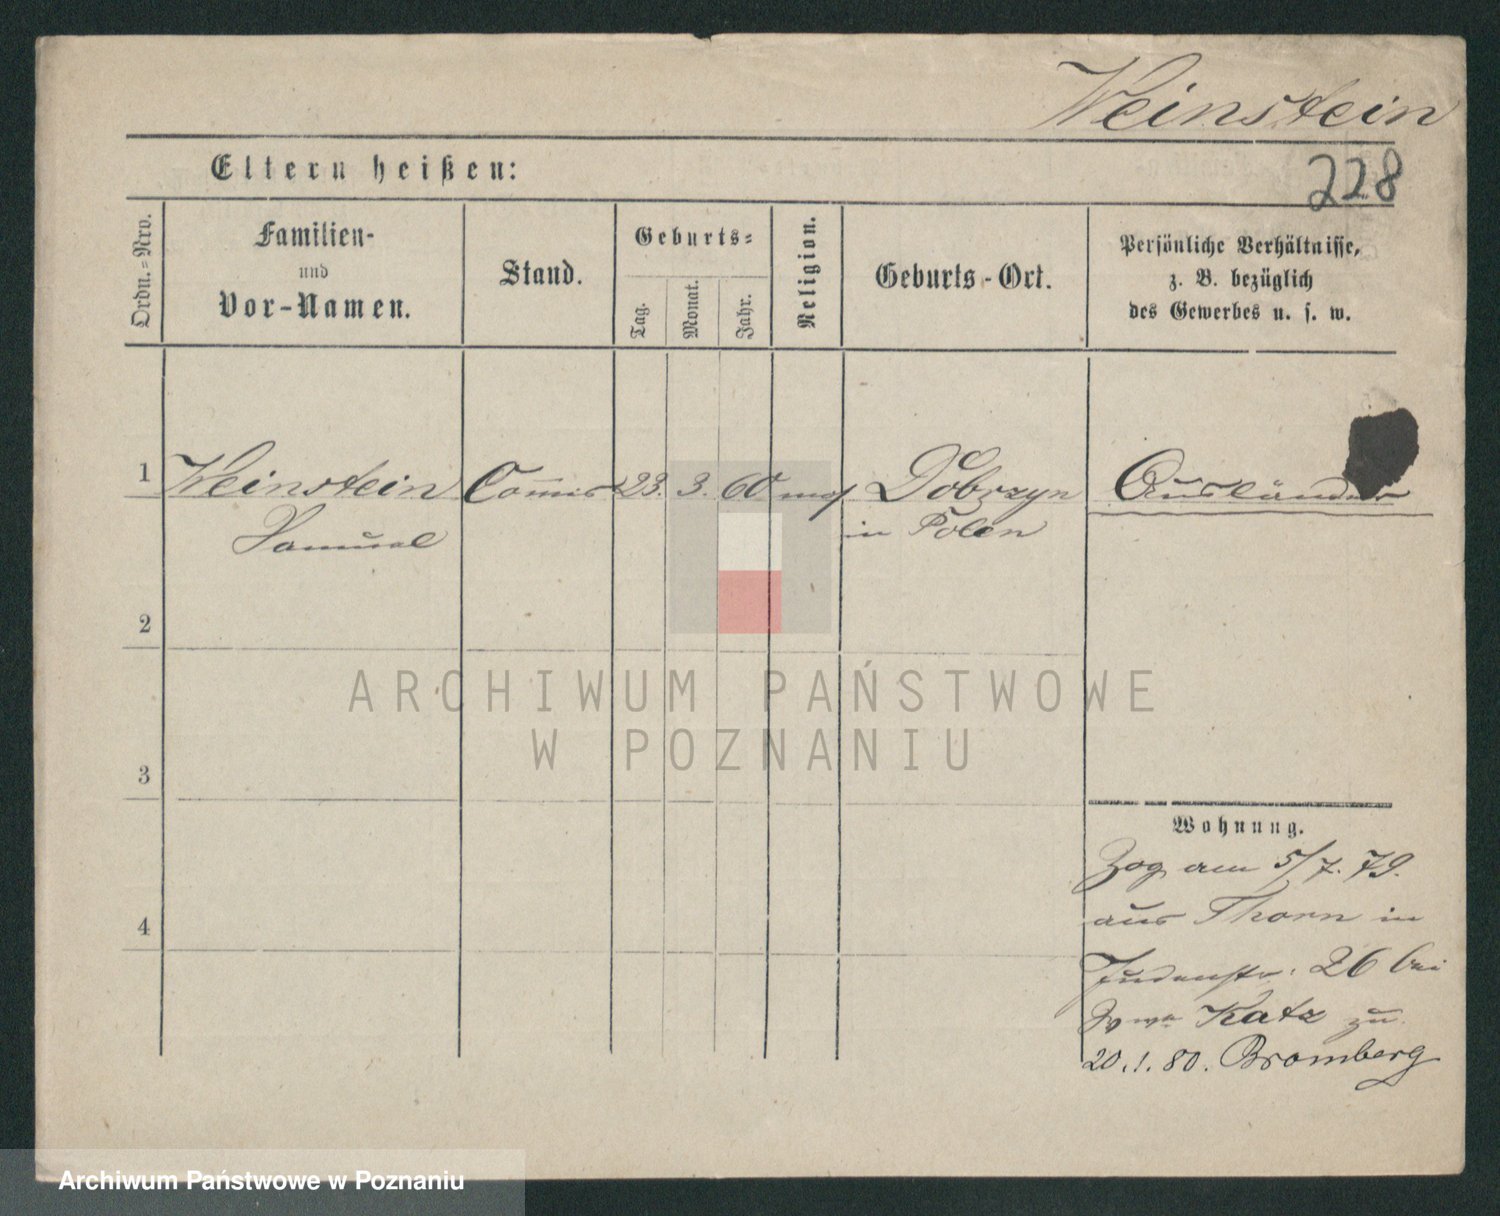 Weinstein
228
Eltern heißen:
Ordn.-Nro.
Familien-
und
Vor-Namen.
Stand.
Geburts-
Tag.
Monat.
Jahr.
Religion.
Geburts-Ort.
Persönliche Verhältnisse,
z. B. bezüglich
des Gewerbes u. s. w.
1 Weinstein Commis 23. 3. 60 mos Dobrzyn Ausländer
Samuel in Polen
2
3
4
Wohnung.
Zog am 5/7. 79.
aus Thorn in
Judenstr. 26 bei
Wwe Katz zu
20.1.80. Bromberg
ARCHIWUM PAŃSTWOWE
W POZNANIU
Archiwum Państwowe w Poznaniu